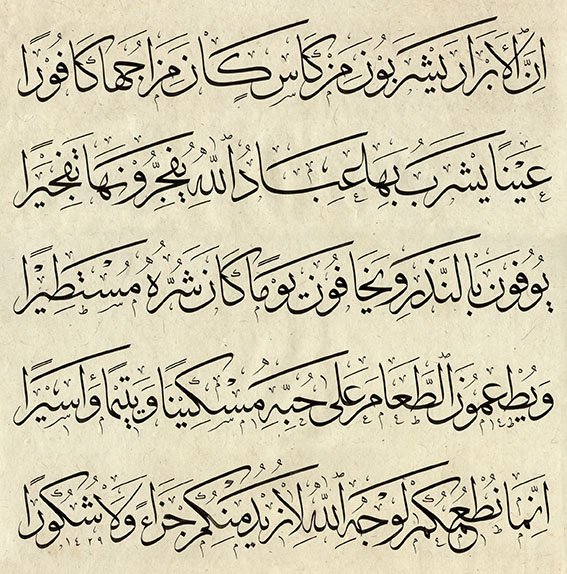 اِنَّ الْاَبْرَارَ يَشْرَبُونَ مِنْ كَأْسٍ كَانَ مِزَاجُهَا كَافُورًا
عَيْنًا يَشْرَبُ بِهَا عِبَادُ اللّٰهِ يُفَجِّرُونَهَا تَفْجِيرًا
يُوفُونَ بِالنَّذْرِ وَيَخَافُونَ يَوْمًا كَانَ شَرُّهُ مُسْتَطِيرًا
وَيُطْعِمُونَ الطَّعَامَ عَلٰى حُبِّهِ مِسْكِينًا وَيَتِيمًا وَاَسِيرًا
اِنَّمَا نُطْعِمُكُمْ لِوَجْهِ اللّٰهِ لَا نُرِيدُ مِنْكُمْ جَزَاءً وَلَا شُكُورًا
١٤٢٩